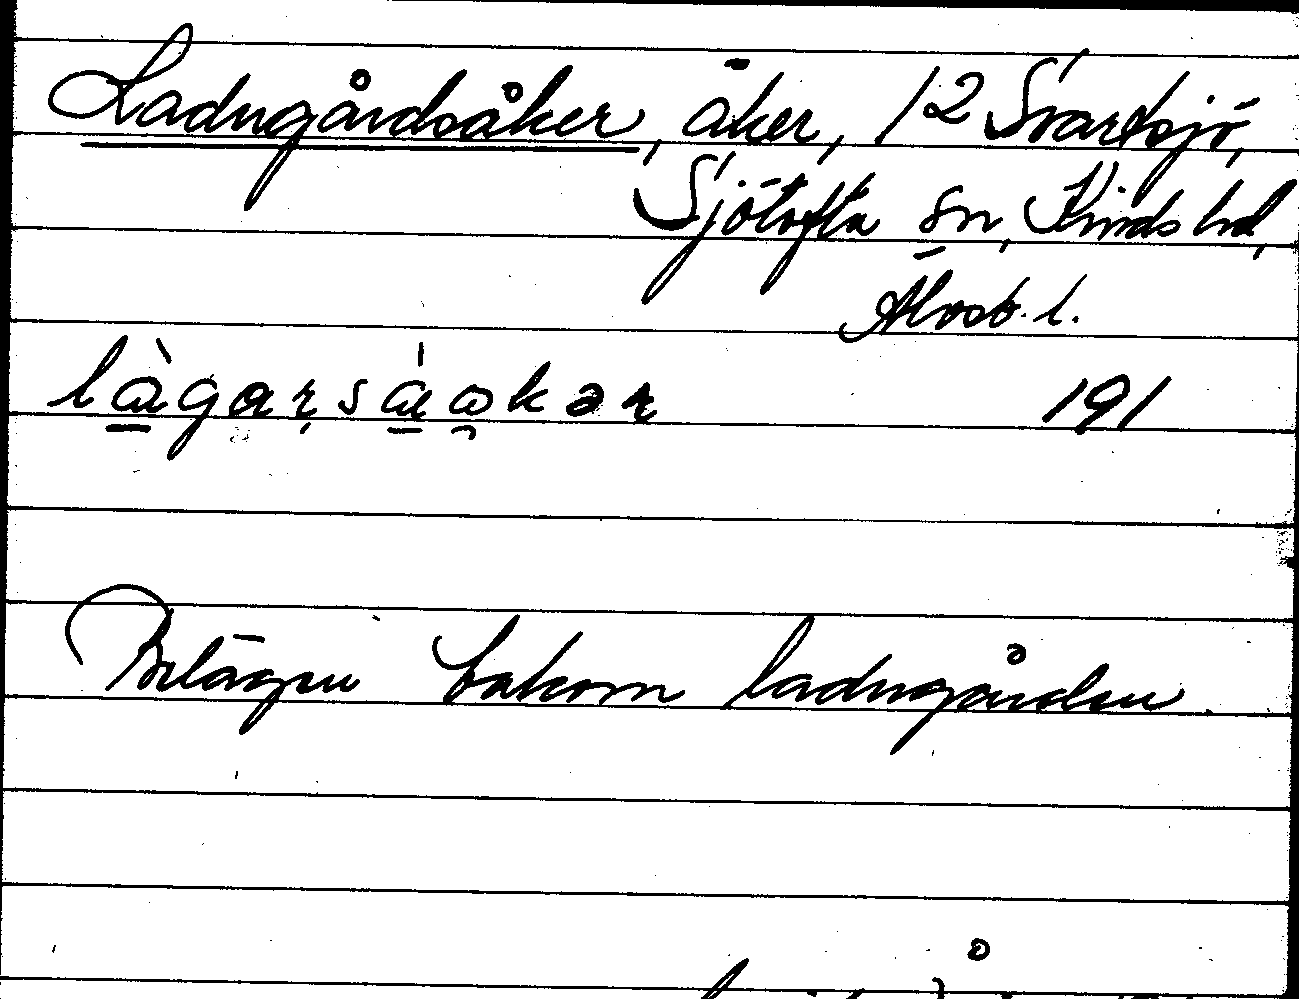 Ladugårdsåker, åker, 12 Svartsjö,
Sjötofta sn, Kinds hd,
Älvsb. l.
191
Belägen bakom ladugården.